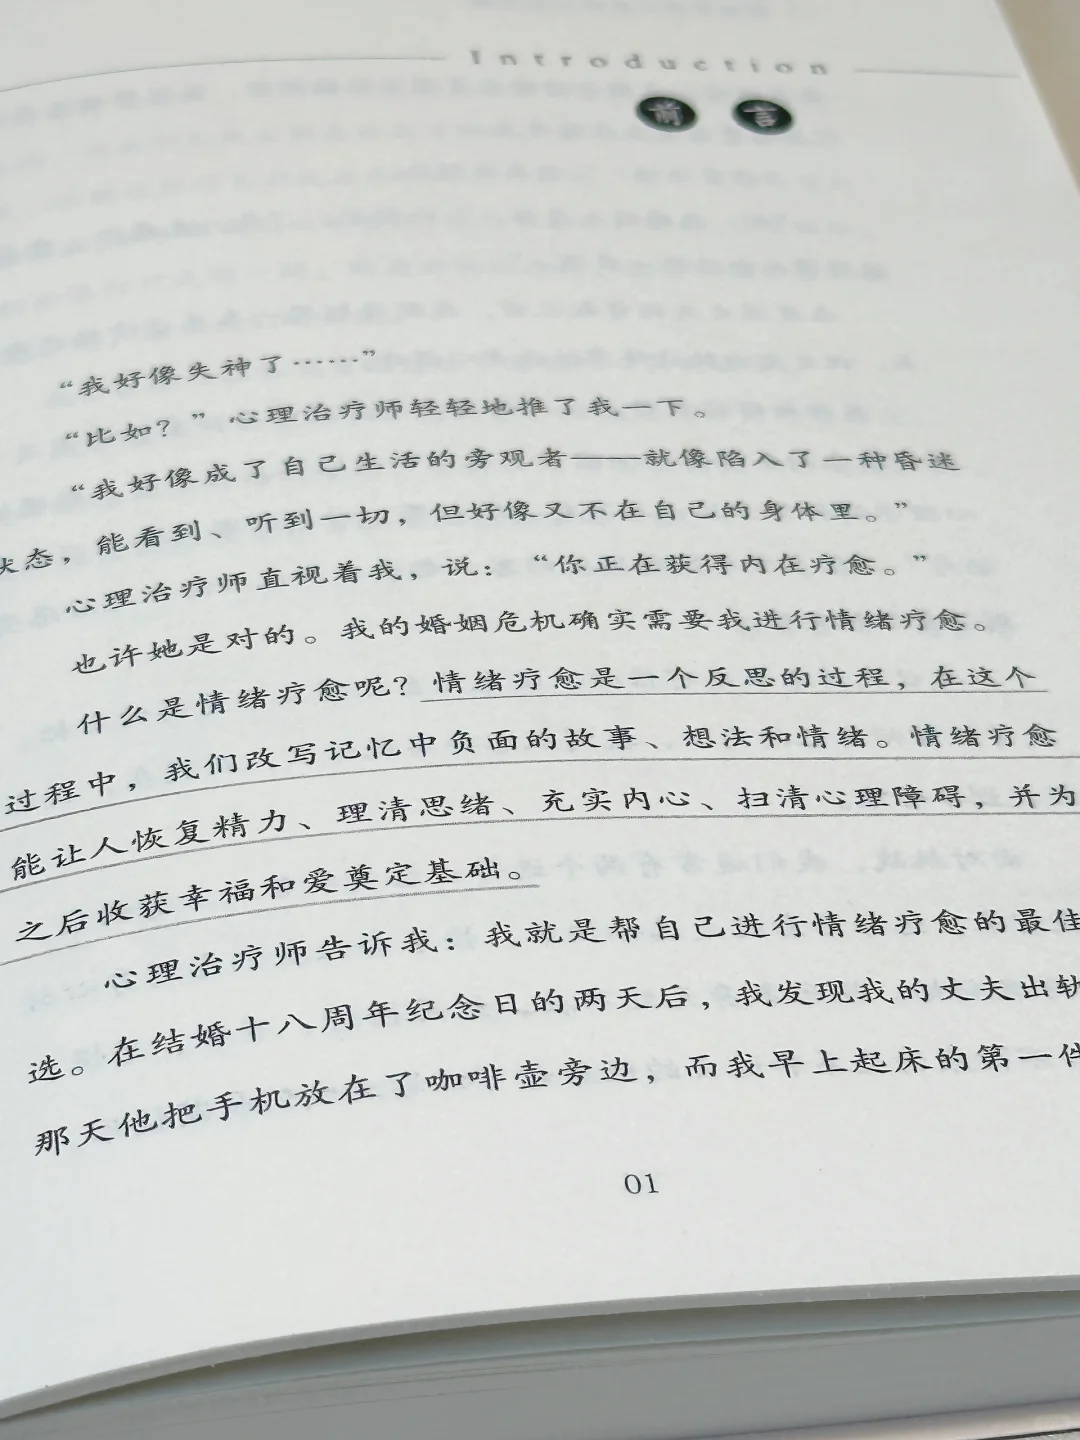 Introduction
前言
“我好像失神了……”
“比如？”心理治疗师轻轻地推了我一下。
“我好像成了自己生活的旁观者——就像陷入了一种昏迷
状态，能看到、听到一切，但好像又不在自己的身体里。”
心理治疗师直视着我，说：“你正在获得内在疗愈。”
也许她是对的。我的婚姻危机确实需要我进行情绪疗愈。
什么是情绪疗愈呢？情绪疗愈是一个反思的过程，在这个
过程中，我们改写记忆中负面的故事、想法和情绪。情绪疗愈
能让人恢复精力、理清思绪、充实内心、扫清心理障碍，并为
之后收获幸福和爱奠定基础。
心理治疗师告诉我：我就是帮自己进行情绪疗愈的最佳
选。在结婚十八周年纪念日的两天后，我发现我的丈夫出轨
那天他把手机放在了咖啡壶旁边，而我早上起床的第一件
01